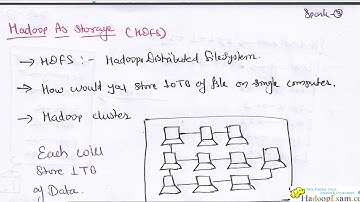 Spark-③
Hadoop As Storage (HDFS)
→ HDFS :- Hadoop Distributed FileSystem.
→ How would you store 10TB of file on single computer.
→ Hadoop cluster
Each will
Store 1TB
of Data.
HadoopExam.co